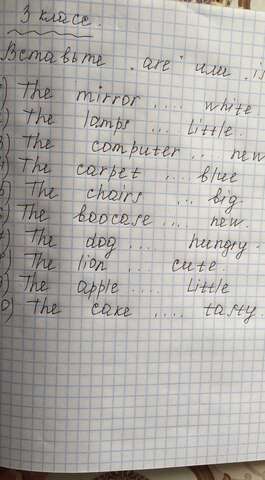 3 класс.
Вставьте .are' или .is
) The mirror .... white
) The lamps ... little.
) The computer .. new
) The carpet .... blue
) The chairs ... big.
) The boocase .... new.
) The dog ... hungry.
) The lion ... cute.
) The apple .... little
0) The cake .... tasty.